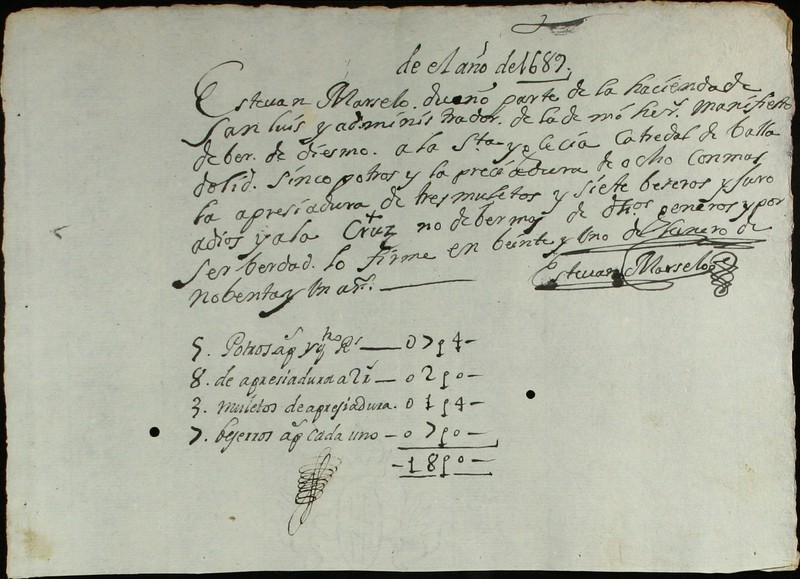 de el año de 1689,
Estevan Marselo. dueño parte de la hacienda de
San luis y administrador. de la de mô her.ͫ manifiesto
deber. de diesmo. a la Sta ygᵒlecia Catredal de Balla
dolid. Sinco potros y la presiadura de ocho con mas
la apresiadura de tres muletos y siete beseros y Juro
adios y ala Cruz no deber mas de dhos generos y por
ser berdad. lo firme en beinte y Uno de Henero de
nobenta y Un as.
Estevan Marselo
5. Potros ap y
8. de apresiadura a 2 r — 0 2 p 0 —
3. muletos de apresiadura. 0 1 p 4 —
7. beserros ap cada uno — 0 7 p 0 —
— 1 8 p 0 —